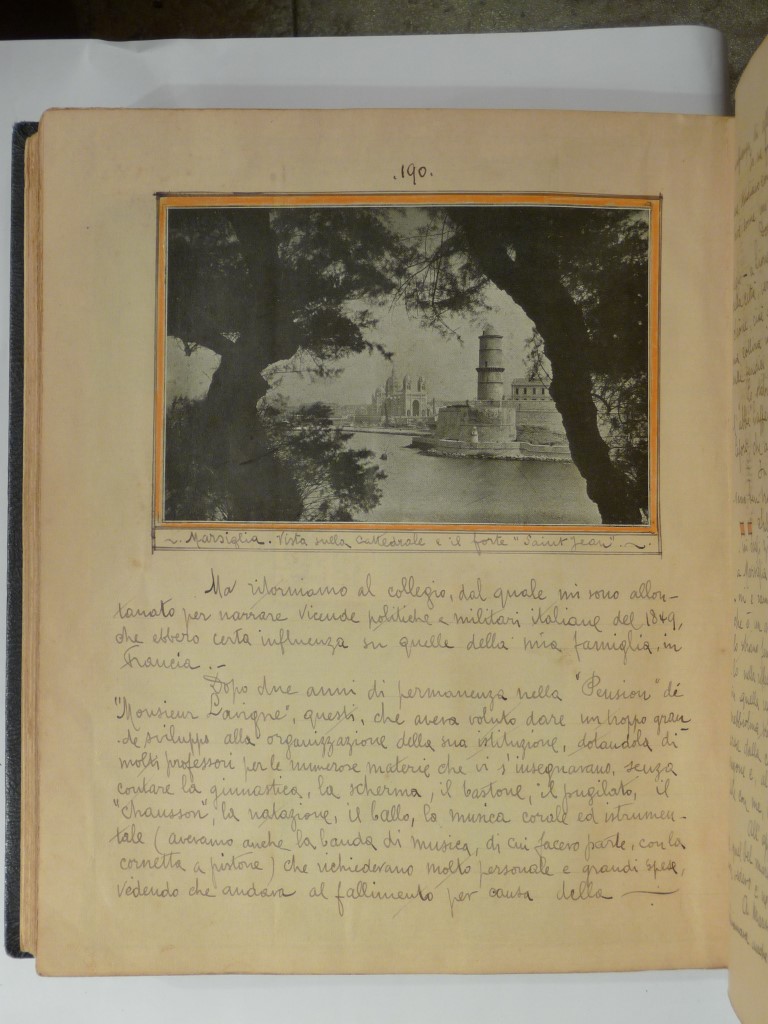 .190.
~. Marsiglia. Vista sulla Cattedrale e il forte "Saint Jean". ~.
Ma ritorniamo al collegio, dal quale mi sono allon-
tanato per narrare vicende politiche e militari italiane del 1849,
che ebbero certa influenza su quelle della mia famiglia, in
Francia.-
Dopo due anni di permanenza nella "Pension" dé
"Monsieur Lavigne", questi, che aveva voluto dare un troppo gran-
de sviluppo alla organizzazione della sua istituzione, dotandola di
molti professori per le numerose materie che vi s'insegnavano, senza
contare la ginnastica, la scherma, il bastone, il pugilato, il
"chausson", la natazione, il ballo, la musica corale ed istrumen-
tale (avevamo anche la banda di musica, di cui facevo parte, con la
cornetta a pistone) che richiedevano molto personale e grandi spese,
vedendo che andava al fallimento per causa della